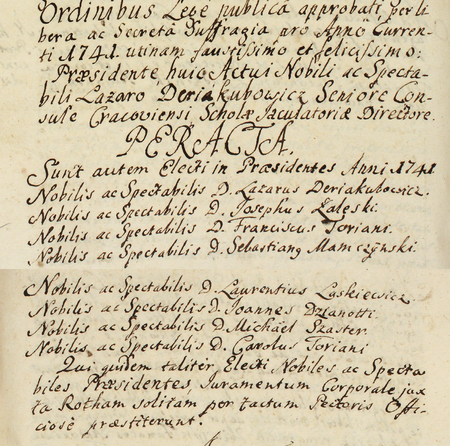 Ordinibus Lege publica approbati per li
bera ac Secreta Suffragia pro Anno Curren-
ti 1741. utinam faustissimo et felicissimo:
Præsidente huic Actui Nobili ac Specta-
bili Lazaro Deriakubowicz Seniore Con-
sule Cracoviensi Scholæ Jaculatoriæ Directore.
PERACTA.
Sunt autem Electi in Præsidentes Anni 1741
Nobilis ac Spectabilis D. Lazarus Deriakubowicz.
Nobilis ac Spectabilis D. Josephus Zaleski.
Nobilis ac Spectabilis D. Franciscus Toriani.
Nobilis ac Spectabilis D. Sebastiang Mamczÿnski
Nobilis ac Spectabilis D. Laurentius Laskiewicz
Nobilis ac Spectabilis D. Joannes Dzianotti.
Nobilis ac Spectabilis D. Michäel Szaster.
Nobilis ac Spectabilis D. Carolus Toriani
Qui quidem taliter Electi Nobiles ac Specta
biles Præsidentes, Juramentum Corporale jux
ta Rotham solitam per tactum Pectoris Offi-
ciose præstiterunt.